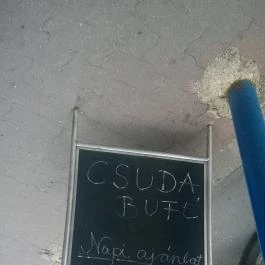 CSUDA
BUFÉ
Napi ajánlat